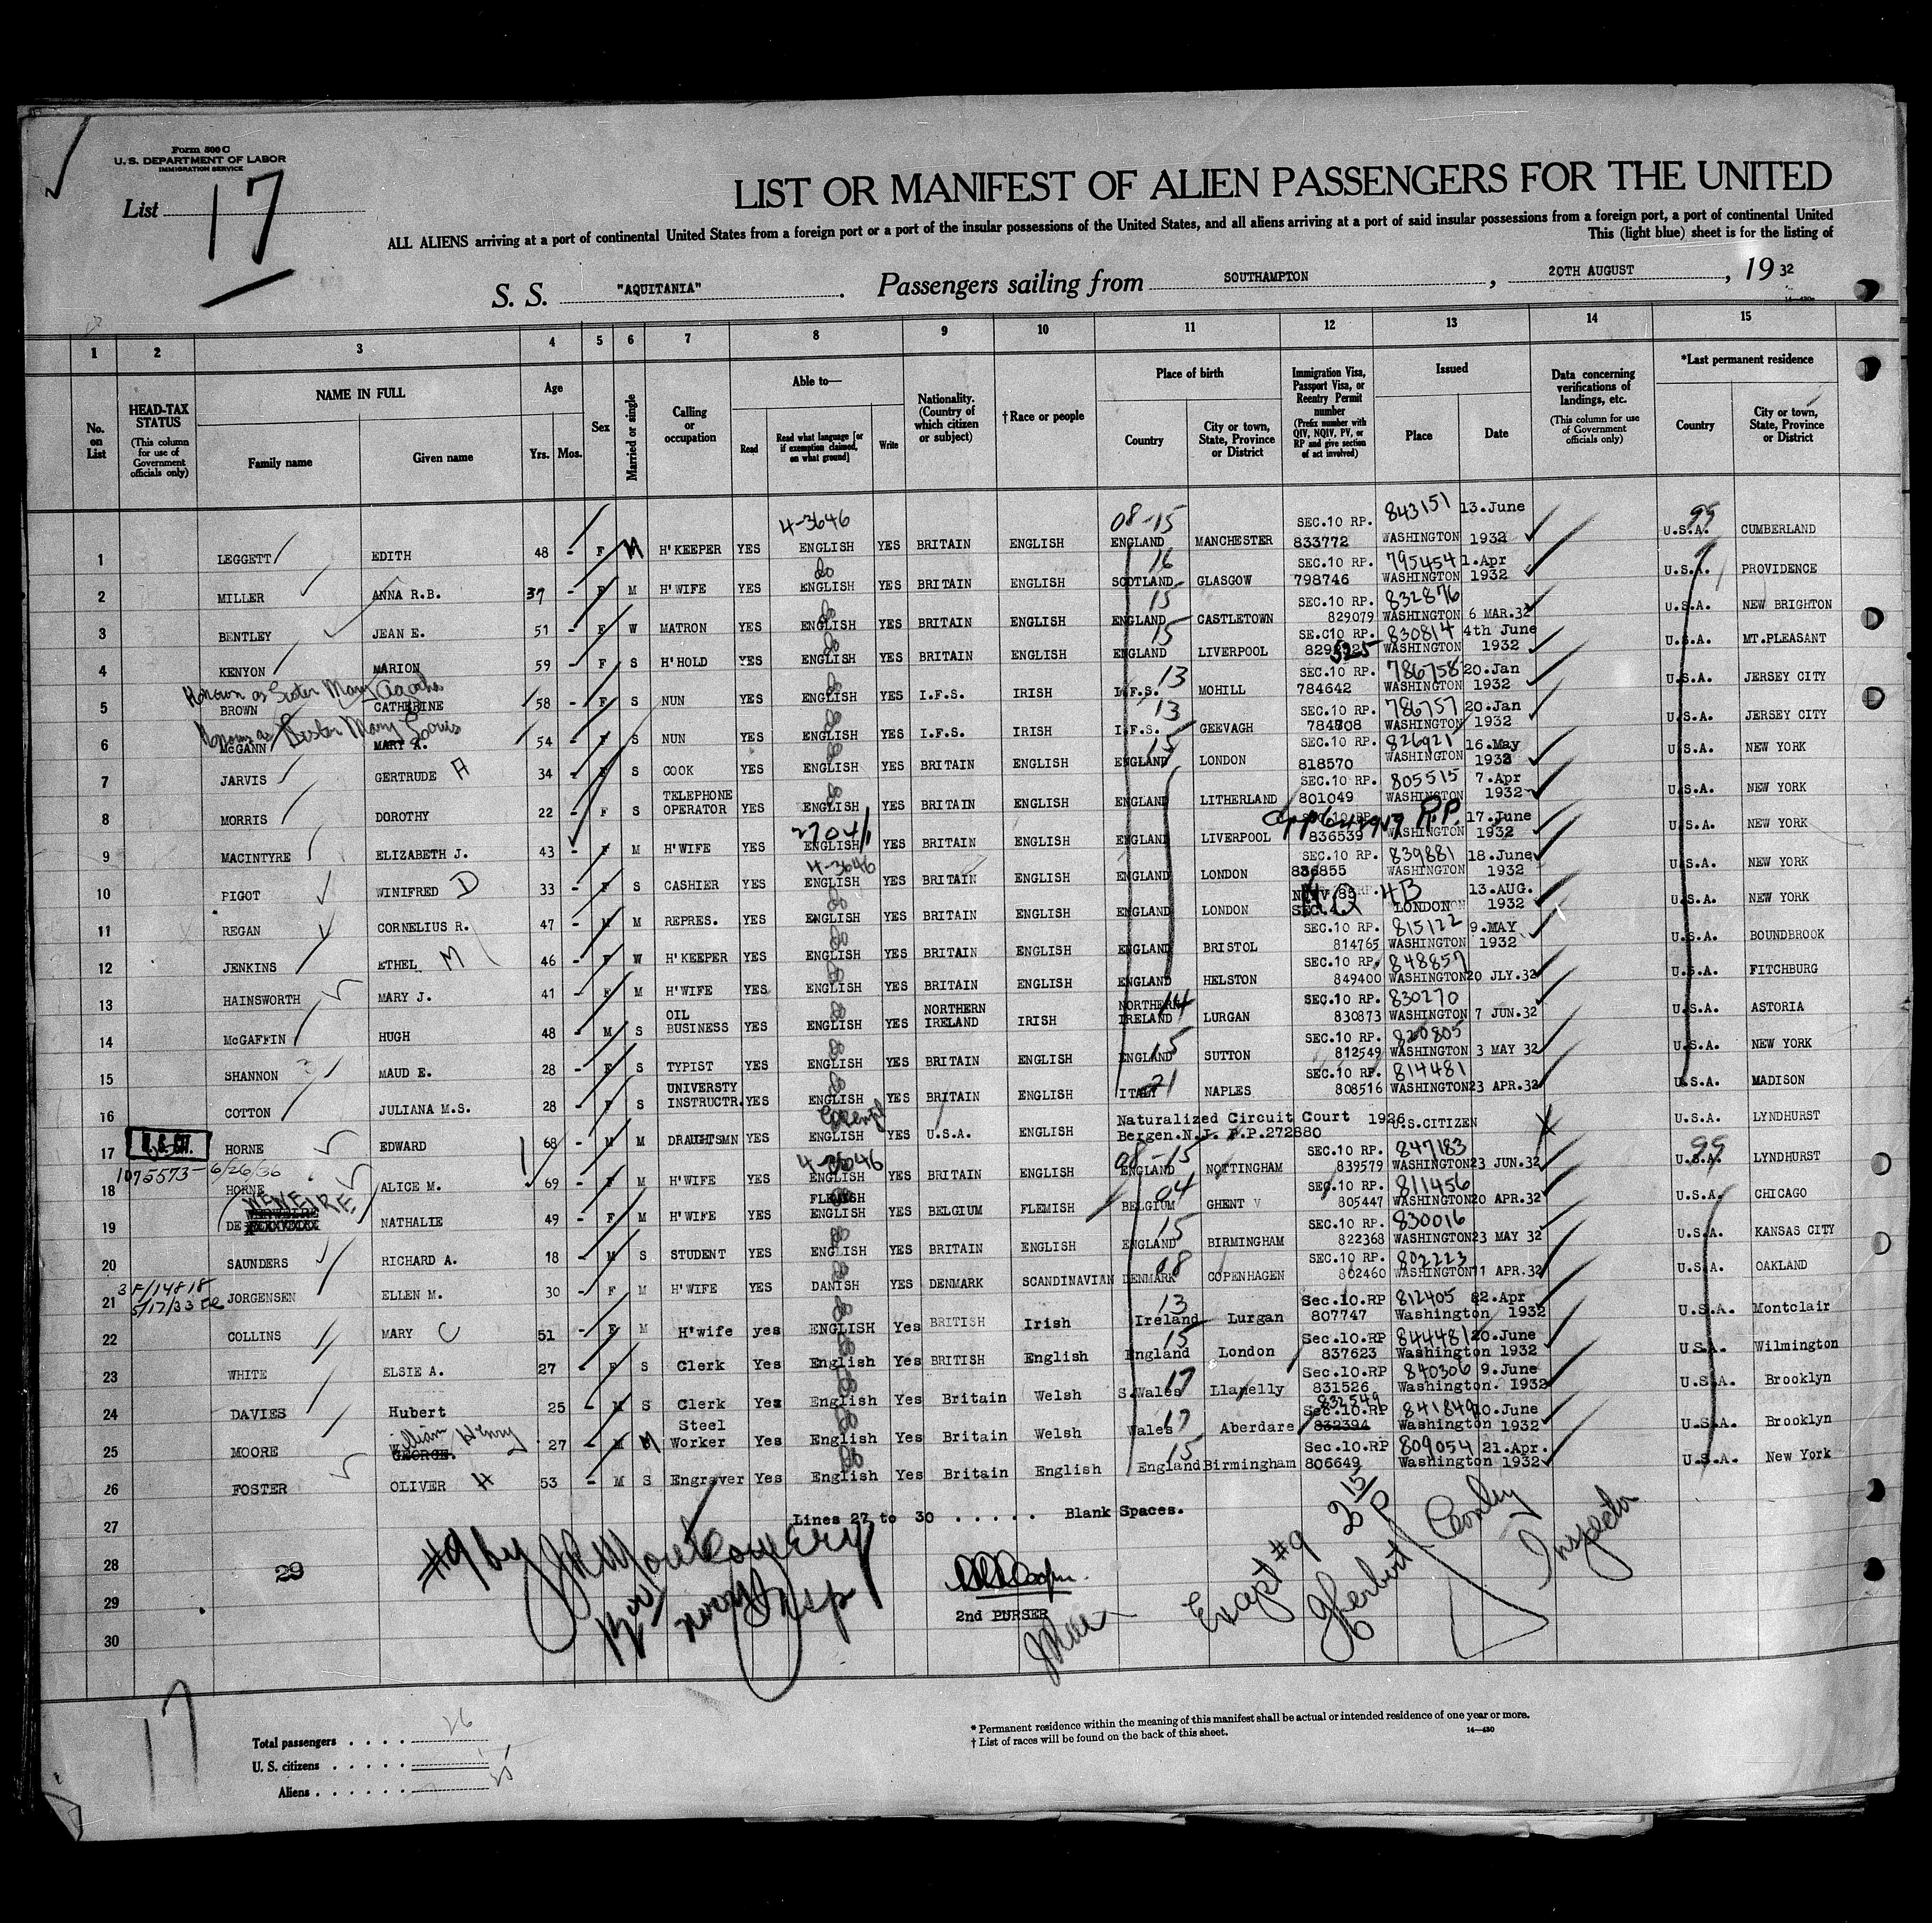 Form 500 C
U. S. DEPARTMENT OF LABOR
IMMIGRATION SERVICE
List 17
LIST OR MANIFEST OF ALIEN PASSENGERS FOR THE UNITED
ALL ALIENS arriving at a port of continental United States from a foreign port or a port of the insular possessions of the United States, and all aliens arriving at a port of said insular possessions from a foreign port, a port of continental United
This (light blue) sheet is for the listing of
S. S. "AQUITANIA". Passengers sailing from SOUTHAMPTON, 20TH AUGUST, 1932
1 2 3 4 5 6 7 8 9 10 11 12 13 14 15
No. on List
HEAD-TAX STATUS (This column for use of Government officials only)
NAME IN FULL
Family name Given name
Age
Yrs. Mos.
Sex
Married or single
Calling or occupation
Able to—
Read
Read what language [or if exemption claimed, on what ground]
Write
Nationality. (Country of which citizen or subject)
†Race or people
Place of birth
Country
City or town, State, Province or District
Immigration Visa, Passport Visa, or Reentry Permit number (Prefix number with QIV, NQIV, PV, or RP and give section of act involved)
Issued
Place Date
Data concerning verifications of landings, etc. (This column for use of Government officials only)
*Last permanent residence
Country
City or town, State, Province or District
1 LEGGETT EDITH 48 - F M H'KEEPER YES 4-3646 ENGLISH YES BRITAIN ENGLISH 08-15 ENGLAND MANCHESTER SEC.10 RP. 833772 843151 WASHINGTON 13.June 1932 99 U.S.A. CUMBERLAND
2 MILLER ANNA R.B. 37 - F M H'WIFE YES do ENGLISH YES BRITAIN ENGLISH 16 SCOTLAND GLASGOW SEC.10 RP. 798746 795454 WASHINGTON 1.Apr 1932 U.S.A. PROVIDENCE
3 BENTLEY JEAN E. 51 - F W MATRON YES do ENGLISH YES BRITAIN ENGLISH 15 ENGLAND CASTLETOWN SEC.10 RP. 829079 832876 WASHINGTON 6 MAR.32 U.S.A. NEW BRIGHTON
4 KENYON MARION 59 - F S H'HOLD YES do ENGLISH YES BRITAIN ENGLISH 15 ENGLAND LIVERPOOL SE.C10 RP. 325 830814 WASHINGTON 4th June 1932 U.S.A. MT.PLEASANT
Known as Sister Mary Agatha
5 BROWN CATHERINE 58 - F S NUN YES do ENGLISH YES I.F.S. IRISH 13 I.F.S. MOHILL SEC.10 RP. 784642 786758 WASHINGTON 20.Jan 1932 U.S.A. JERSEY CITY
Known as Sister Mary Louis
6 McGANN MARY A. 54 - F S NUN YES do ENGLISH YES I.F.S. IRISH 13 I.F.S. GEEVAGH SEC.10 RP. 784808 786757 WASHINGTON 20.Jan 1932 U.S.A. JERSEY CITY
7 JARVIS GERTRUDE A 34 - F S COOK YES do ENGLISH YES BRITAIN ENGLISH 15 ENGLAND LONDON SEC.10 RP. 818570 826921 WASHINGTON 16.May 1932 U.S.A. NEW YORK
8 MORRIS DOROTHY 22 - F S TELEPHONE OPERATOR YES do ENGLISH YES BRITAIN ENGLISH ENGLAND LITHERLAND SEC.10 RP. 801049 805515 WASHINGTON 7.Apr 1932 U.S.A. NEW YORK
9 MACINTYRE ELIZABETH J. 43 - F M H'WIFE YES ENGLISH YES BRITAIN ENGLISH ENGLAND LIVERPOOL 836539 R.P. WASHINGTON 17.June 1932 U.S.A. NEW YORK
10 PIGOT WINIFRED D 33 - F S CASHIER YES 4-3646 ENGLISH YES BRITAIN ENGLISH ENGLAND LONDON SEC.10 RP. 836855 839881 WASHINGTON 18.June 1932 U.S.A. NEW YORK
11 REGAN CORNELIUS R. 47 - M M REPRES. YES do ENGLISH YES BRITAIN ENGLISH ENGLAND LONDON SEC.4 4B LONDON 13.AUG. 1932 U.S.A. NEW YORK
12 JENKINS ETHEL M 46 - F W H'KEEPER YES do ENGLISH YES BRITAIN ENGLISH ENGLAND BRISTOL SEC.10 RP. 814765 815122 WASHINGTON 9.MAY 1932 U.S.A. BOUNDBROOK
13 HAINSWORTH MARY J. 41 - F M H'WIFE YES do ENGLISH YES BRITAIN ENGLISH ENGLAND HELSTON SEC.10 RP. 849400 848857 WASHINGTON 20 JLY.32 U.S.A. FITCHBURG
14 McGAFFIN HUGH 48 - M S OIL BUSINESS YES do ENGLISH YES NORTHERN IRELAND IRISH 14 NORTHERN IRELAND LURGAN SEC.10 RP. 830873 830270 WASHINGTON 7 JUN.32 U.S.A. ASTORIA
15 SHANNON MAUD E. 28 - F S TYPIST YES do ENGLISH YES BRITAIN ENGLISH 15 ENGLAND SUTTON SEC.10 RP. 812549 820805 WASHINGTON 3 MAY 32 U.S.A. NEW YORK
16 COTTON JULIANA M.S. 28 - F S UNIVERSTY INSTRUCTR. YES do ENGLISH YES BRITAIN ENGLISH 21 ITALY NAPLES SEC.10 RP. 808516 814481 WASHINGTON 23 APR.32 U.S.A. MADISON
17 HORNE EDWARD 68 - M M DRAUGHTSMN YES ENGLISH YES U.S.A. ENGLISH Naturalized Circuit Court 1926 Bergen.N.J. P.P.272880 U.S.CITIZEN U.S.A. LYNDHURST
1075573-6/26/36
18 HORNE ALICE M. 69 - F M H'WIFE YES ENGLISH YES BRITAIN ENGLISH 08-15 ENGLAND NOTTINGHAM SEC.10 RP. 839579 847183 WASHINGTON 23 JUN.32 99 U.S.A. LYNDHURST
19 DE NATHALIE 49 - F M H'WIFE YES FLEMISH ENGLISH YES BELGIUM FLEMISH 04 BELGIUM GHENT SEC.10 RP. 805447 811456 WASHINGTON 20 APR.32 U.S.A. CHICAGO
20 SAUNDERS RICHARD A. 18 - M S STUDENT YES do ENGLISH YES BRITAIN ENGLISH 15 ENGLAND BIRMINGHAM SEC.10 RP. 822368 830016 WASHINGTON 23 MAY 32 U.S.A. KANSAS CITY
3F/14818
5/17/33
21 JORGENSEN ELLEN M. 30 - F M H'WIFE YES do DANISH YES DENMARK SCANDINAVIAN 08 DENMARK COPENHAGEN SEC.10 RP. 802460 802223 WASHINGTON 11 APR.32 U.S.A. OAKLAND
22 COLLINS MARY C 51 - F M H'wife yes do ENGLISH Yes BRITISH Irish 13 Ireland Lurgan Sec.10.RP 807747 812405 Washington 22.Apr 1932 U.S.A. Montclair
23 WHITE ELSIE A. 27 - F S Clerk Yes do English Yes BRITISH English 15 England London Sec.10.RP 837623 844481 Washington 20.June 1932 U.S.A. Wilmington
24 DAVIES Hubert 25 - M S Clerk Yes do English Yes Britain Welsh 17 S.Wales Llanelly Sec.10.RP 831526 840306 Washington. 9.June 1932 U.S.A. Brooklyn
25 MOORE William Henry GEORGE. 27 - M M Steel Worker Yes do English Yes Britain Welsh 17 Wales Aberdare 832549 Sec.10.RP 832394 841849 Washington 10.June 1932 U.S.A. Brooklyn
26 FOSTER OLIVER H 53 - M S Engraver Yes do English Yes Britain English 15 England Birmingham Sec.10.RP 806649 809054 Washington 21.Apr. 1932 U.S.A. New York
27 Lines 27 to 30 . . . . . Blank Spaces.
28
29
29
30
#9 by
2nd PURSER
Except #9
Herbert Conley
Inspector
17
Total passengers . . . . 26
U. S. citizens . . . . . 1
Aliens . . . . . . 25
* Permanent residence within the meaning of this manifest shall be actual or intended residence of one year or more.
† List of races will be found on the back of this sheet.
14—430